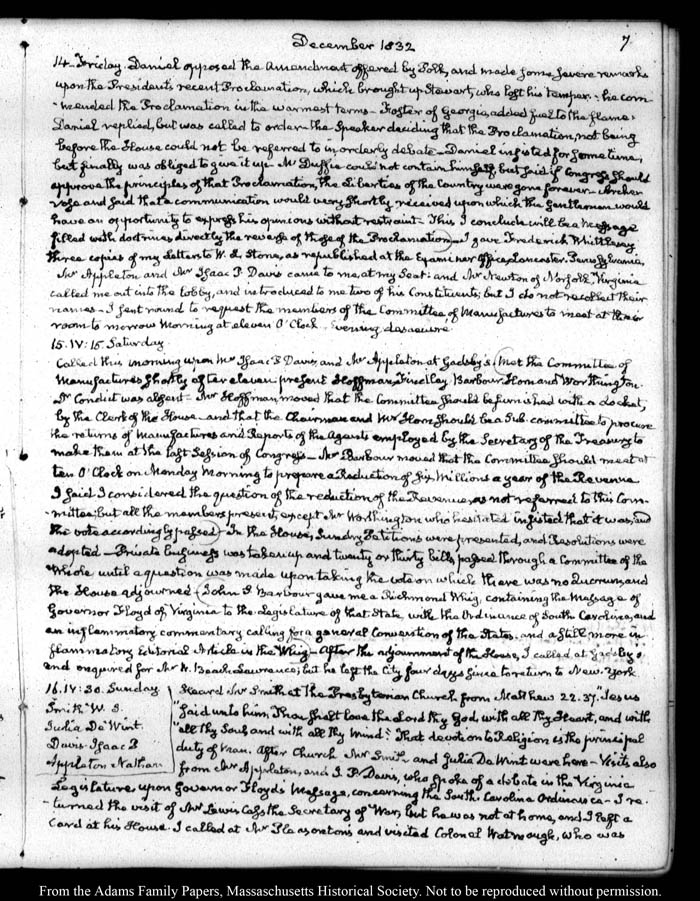 December 1832
7
14. Friday. Daniel opposed the Amendment offered by Polk, and made some severe remarks
upon the President's recent Proclamation, which brought up Stewart, who lost his temper: he com-
-mended the Proclamation in the warmest terms. Foster of Georgia, added fuel to the flame:
Daniel replied, but was called to order—the Speaker deciding that the Proclamation, not being
before the House could not be referred to in orderly debate—Daniel insisted for some time;
but finally was obliged to give it up. McDuffie could not contain himself, but said if Congress should
approve the principles of that Proclamation, the Liberties of the Country were gone forever—Archer
rose and said that a communication would very shortly be received upon which the Gentleman would
have an opportunity to express his opinions without restraint—This I conclude will be a Message
filled with doctrines directly the reverse of those of the Proclamation—I gave Frederick Whittlesey
three copies of my Letters to W. L. Stone, as republished at the Examiner Office, Lancaster, Pennsylvania,
Mr Appleton and Mr Isaac P. Davis came to me, at my Seat: and Mr Newton of Norfolk Virginia
called me out into the lobby, and introduced to me two of his Constituents; but I do not recollect their
names—I sent round to request the members of the Committee of Manufactures to meet at their
room to morrow Morning at eleven O'Clock. Evening desoeuvré.
15. IV:15. Saturday.
Called this morning upon Mr Isaac P. Davis, and Mr Appleton at Gadsby's. Met the Committee of
Manufactures shortly after eleven. present Hoffman, Findlay, Barbour, Horn and Worthington.
Dr Condict was absent—Mr Hoffman moved that the Committee should be furnished with a Locket,
by the Clerk of the House—and that the Chairman and Mr Horn should be a Sub-committee to procure
the returns of Manufactures and Reports of the Agents employed by the Secretary of the Treasury to
make them at the last Session of Congress—Mr Barbour moved that the Committee should meet at
ten O'Clock on Monday Morning to prepare a Reduction of Six Millions a year of the Revenue
I said I considered the question of the reduction of the Revenue, as not referred to this Com-
-mittee; but all the members present, except Mr Worthington who hesitated insisted that it was, and
the vote accordingly passed—In the House, Sundry Petitions were presented, and Resolutions were
adopted—Private business was taken up and twenty or thirty bills, passed through a Committee of the
Whole until a question was made upon taking the vote on which there was no Quorum, and
the House adjourned—John S. Barbour gave me a Richmond Whig, containing the Message of
Governor Floyd of Virginia to the Legislature of that State, with the Ordinance of South Carolina, and
an inflammatory commentary calling for a general Convention of the States, and a still more in-
flammatory Editorial Article in the Whig—After the adjournment of the House, I called at Gadsby's
and enquired for Mr W. Beach Lawrence; but he left the City four days since to return to New-York
16. IV:30. Sunday
Smith W. S.
Julia De Wint.
Davis Isaac P
Appleton Nathan
Heard Mr Smith at the Presbyterian Church from Matthew 22.37. "Jesus
"said unto him, Thou shalt love the Lord thy God, with all thy Heart, and with
"all thy Soul, and with all thy Mind": That devotion to Religion is the principal
duty of Man. After Church Mr Smith and Julia De Wint were here—Visits also
from Mr Appleton, and I. P. Davis, who spoke of a debate in the Virginia
Legislature upon Governor Floyd's Message, concerning the South-Carolina Ordinance—I re-
-turned the visit of Mr Lewis Cass the Secretary of War, but he was not at home, and I left a
Card at his House. I called at Mr Pleasonton's and visited Colonel Watmough, who was
From the Adams Family Papers, Massachusetts Historical Society. Not to be reproduced without permission.